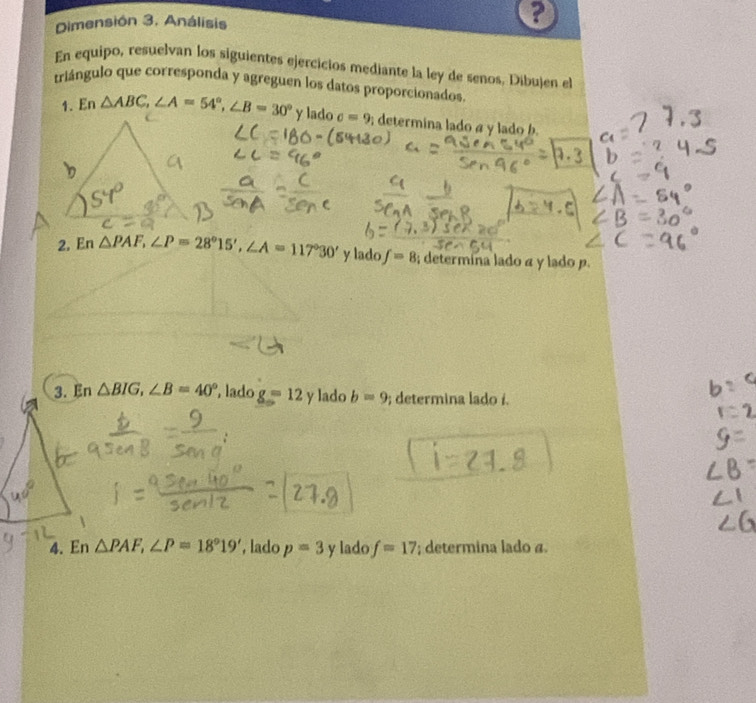 ?
Dimensión 3. Análisis
En equipo, resuelvan los siguientes ejercicios mediante la ley de senos. Dibujen el
triángulo que corresponda y agreguen los datos proporcionados.
1. En △ABC, ∠A = 54°, ∠B = 30° y lado c = 9; determina lado a y lado b.
C
b
a
54°
A
c = 9
B
∠C = 180 - (54+30)
∠C = 96°
a/sen A = c/sen c
a = 9 sen 54°/sen 96° = 7.3
a/sen A b/sen B
b = 4.5
b = (7.3) sen 30°/sen 54
a = ? 7.3
b = ? 4.5
c = 9
∠A = 54°
∠B = 30°
∠C = 96°
2. En △PAF, ∠P = 28°15′, ∠A = 117°30′ y lado f = 8; determina lado a y lado p.
3. En △BIG, ∠B = 40°, lado g = 12 y lado b = 9; determina lado i.
40°
g = 12
i = 9 sen 40°/sen 12 = 27.8
i = 27.8
b =
i = 2
g =
∠B =
∠I
∠G
4. En △PAF, ∠P = 18°19′, lado p = 3 y lado f = 17; determina lado a.